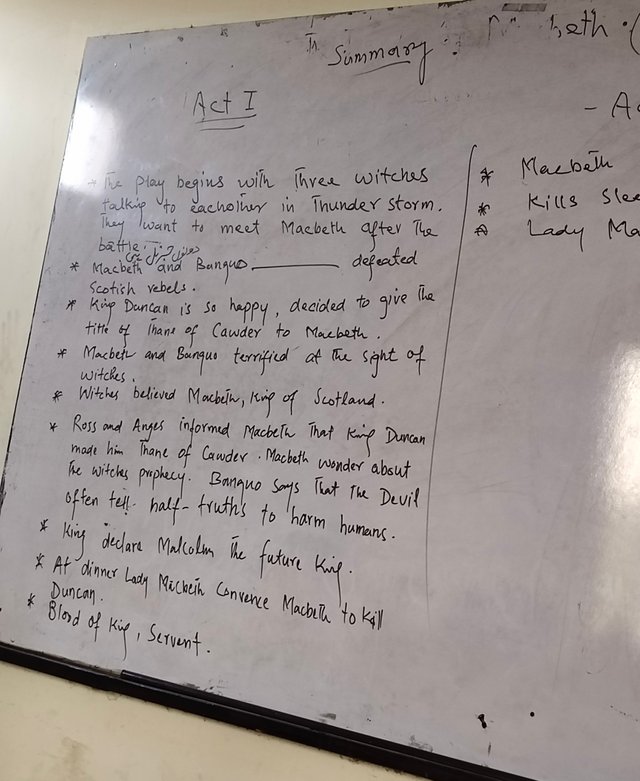 Summary :
beth . (
Act I
- Ac
* The play begins with Three witches
talking to eachother in Thunder storm.
They want to meet Macbeth after The
battle.
دونوں جنرل ہیں
* Macbeth and Banquo ________ defeated
Scotish rebels.
* King Duncan is so happy, decided to give The
title of Thane of Cawder to Macbeth.
* Macbeth and Banquo terrified at the sight of
witches.
* Witches believed Macbeth, King of Scotland.
* Ross and Anges informed Macbeth That King Duncan
made him Thane of Cawder. Macbeth wonder about
The witches prophecy. Banquo says That The Devil
often tell half-truths to harm humans.
* King declare Malcolm The future King.
* At dinner Lady Macbeth Convence Macbeth to kill
Duncan.
* Blood of King, Servent.
* Macbeth
* Kills Slee
* Lady Ma